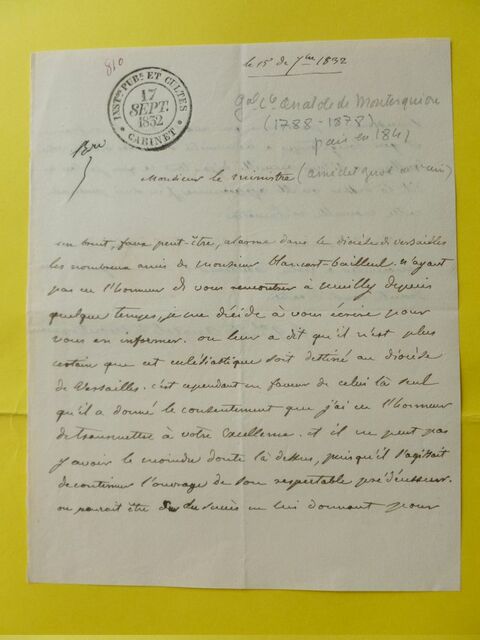 810
le 15 de 7bre 1832
INST.on PUB.e ET CULTES
17
SEPT.
1832
CABINET
gal Cte Anatole de Montesquiou
(1788 - 1878)
pair en 1841
Monsieur le ministre
un bruit, faux peut-être, alarme dans le diocèse de Versailles
les nombreux amis de Monsieur blancart-bailleul. n'ayant
pas eu l'honneur de vous rencontrer à neuilly depuis
quelque temps, je me décide à vous écrire pour
vous en informer. on leur a dit qu'il n'est plus
certain que cet ecclésiastique soit destiné au diocèse
de Versailles. c'est cependant en faveur de celui là seul
qu'il a donné le consentement que j'ai eu l'honneur
de transmettre à votre Excellence. et il ne peut pas
y avoir le moindre doute là dessus, puisqu'il s'agissait
de continuer l'ouvrage de son respectable prédécesseur.
on pourait être du succès en lui donnant pour